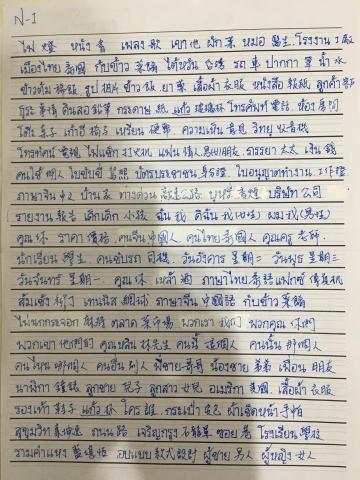 N-1
ไฟ 燈 หนังสือ 書 เพลง 歌 เขา 他 ผัก 菜 หมอ 醫生 โรงงาน 工廠
เมืองไทย 泰國 กับข้าว 菜餚 ไต้หวัน 台灣 รถ 車 ปากกา 筆 น้ำ 水
ข้าวต้ม 稀飯 รูป 相片 ข้าว 飯 ยา 藥 เสื้อผ้า 衣服 หนังสือ 報紙 ลูกค้า 客戶
ธุระ 事情 ดินสอ 鉛筆 กระดาษ 紙 แก้ว 玻璃杯 โทรศัพท์ 電話 ห้อง 房間
โต๊ะ 桌子 เก้าอี้ 椅子 เหรียญ 硬幣 ความเห็น 意見 วิทยุ 收音機
โทรทัศน์ 電視 ไฟแช็ก 打火機 แฟน 情人男女朋友 ภรรยา 太太 เงิน 錢
คนใช้ 佣人 ใบขับขี่ 駕照 บัตรประชาชน 身份證 ใบอนุญาตทำงาน 工作證
ภาษาจีน 中文 บ้าน 家 ทางด่วน 高速公路 บุหรี่ 香煙 บริษัท 公司
รายงาน 報告 เด็กเล็ก 小孩 ฉัน 我 ดิฉัน 我(女性) ผม 我(男性)
คุณ 你 ราคา 價格 คนจีน 中國人 คนไทย 泰國人 คุณครู 老師
นักเรียน 學生 คนขับรถ 司機 วันอังคาร 星期二 วันพุธ 星期三
วันจันทร์ 星期一 คุณ 你 เหล้า 酒 ภาษาไทย 泰語 แฟกซ์ 傳真機
ส้มเช้ง 柳丁 เทนนิส 網球 ภาษาจีน 中國語 กับข้าว 菜餚
ไม่นกกระจอก 麻將 ตลาด 菜市場 พวกเรา 我們 พวกคุณ 你們
พวกเขา 他們 คุณหลิน 林先生 คนนี้ 這個人 คนนั้น 那個人
คนไหน 哪個人 คนอื่น 別人 พี่ชาย 哥哥 น้องชาย 弟弟 เพื่อน 朋友
นาฬิกา 鐘錶 ลูกชาย 兒子 ลูกสาว 女兒 อเมริกา 美國 เสื้อผ้า 衣服
รองเท้า 鞋子 แก้ว 杯 ใคร 誰 กระเป๋า 皮包 ผ้าเช็ดหน้า 手帕
สุขุมวิท ถนน 路 เจริญกรุง ซอย 巷 โรงเรียน 學校
รามคำแหง 藍甘杏 ออกแบบ 款式設計 ผู้ชาย 男人 ผู้หญิง 女人